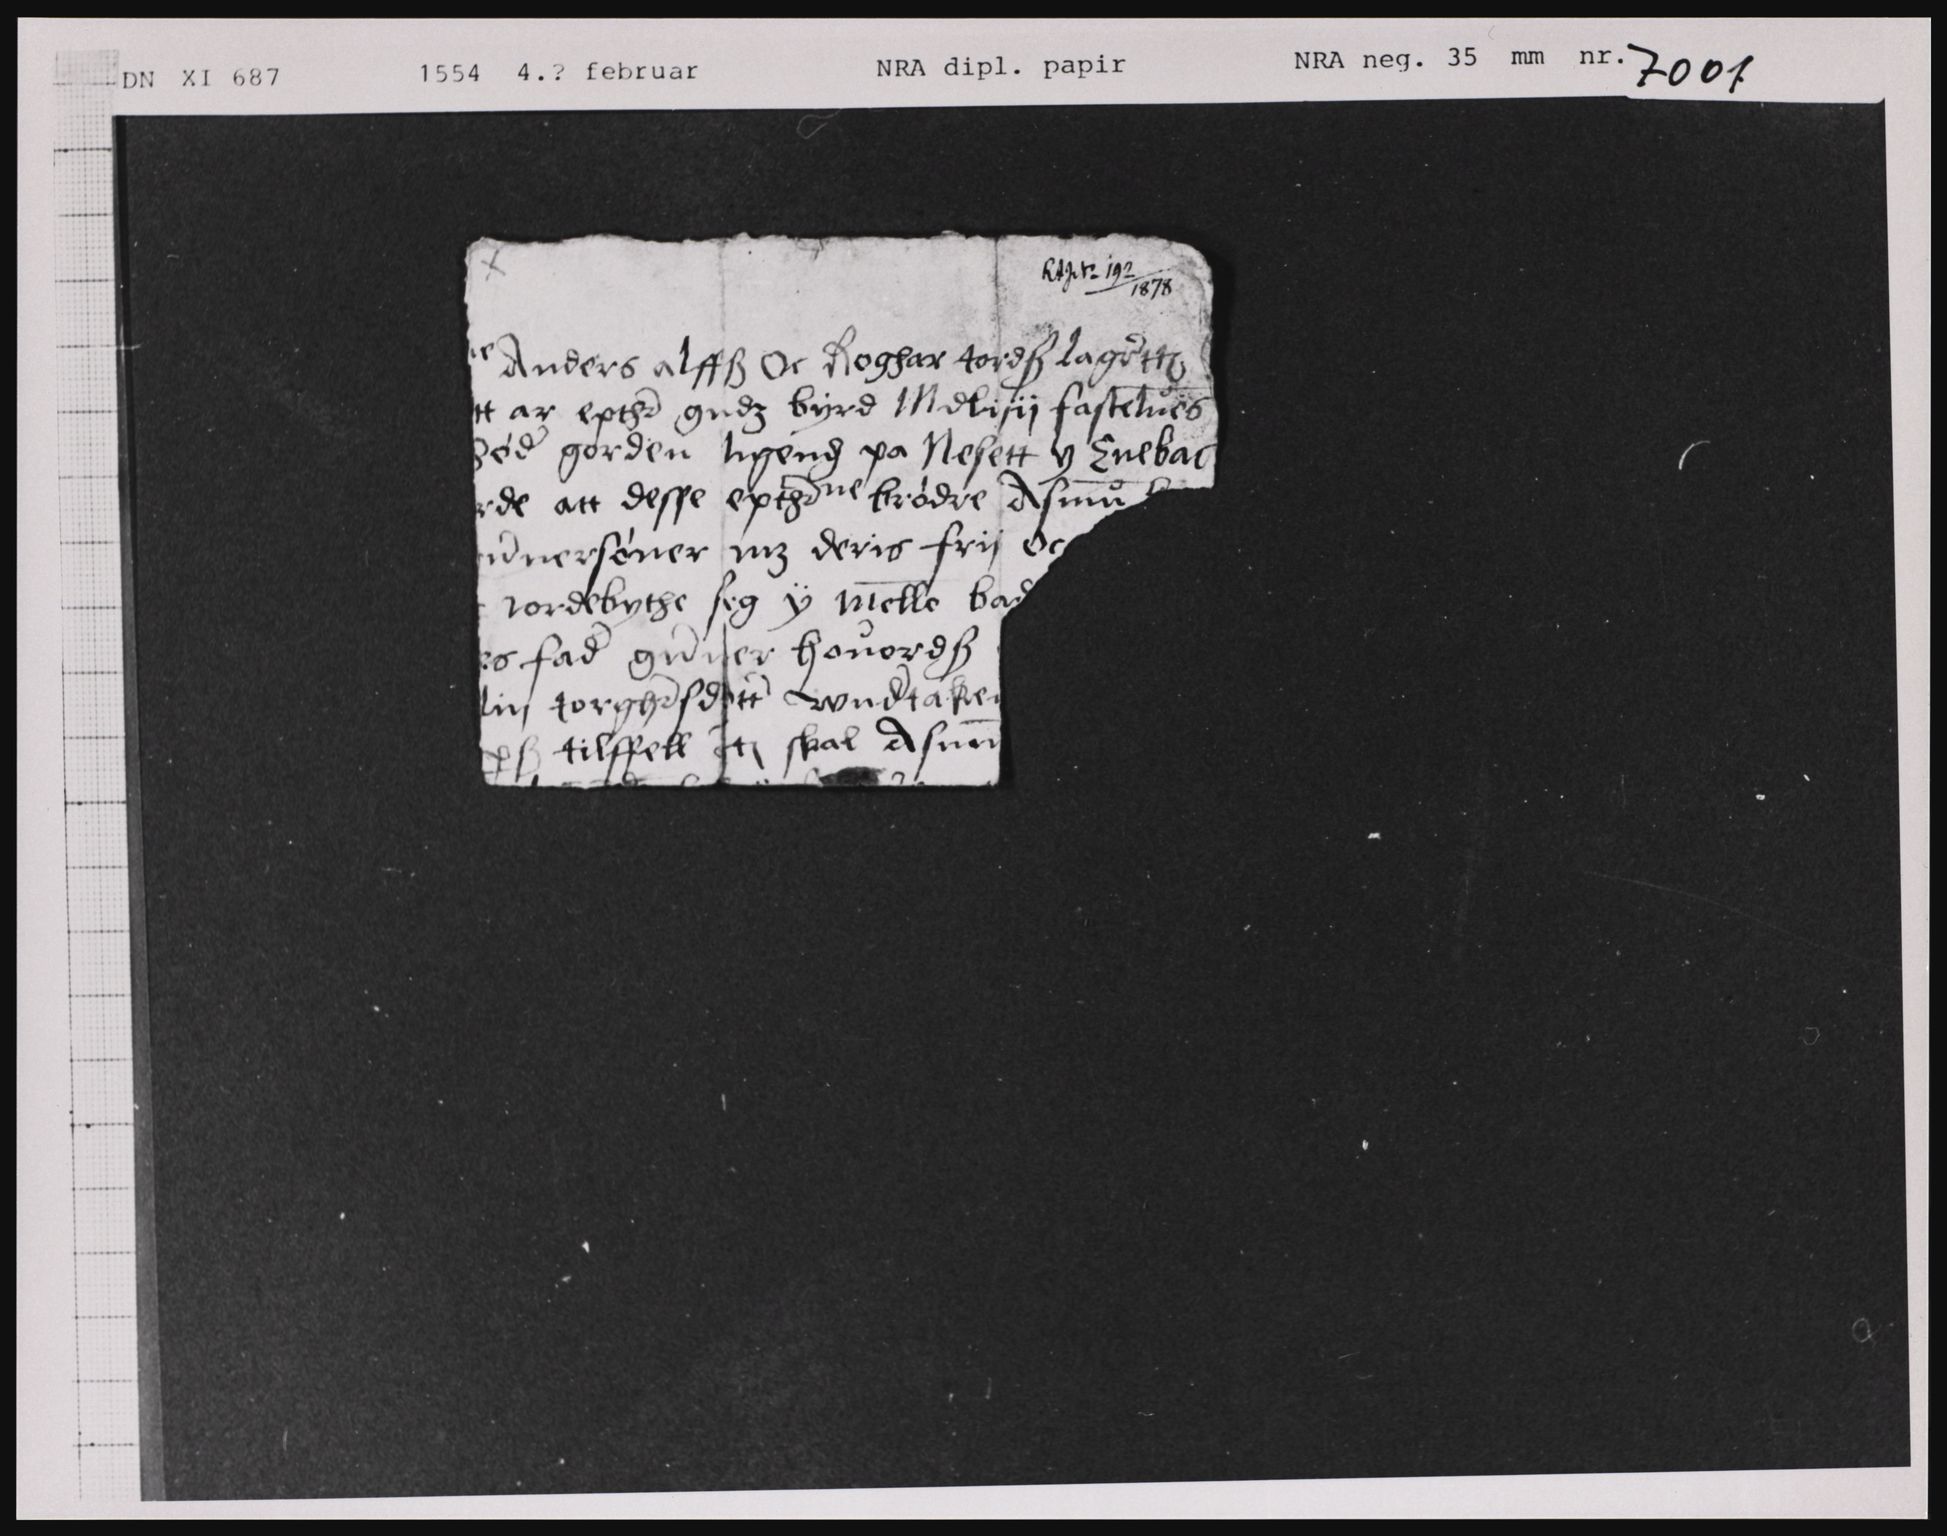 DN XI 687 1554 4.? februar NRA dipl. papir NRA neg. 35 mm nr. 7001
192
1878
ne Anders alffß Oc Roghar tordß lagrett
tt ar epther gudz byrd Mdliiij fastelues
gorden ligend pa Nesett y Enebac
rde att desse epthrne brødre Asmu
nersøner mz deris frij oc
iordebythe seg ÿ melle bad
es fad gunner houordß
lin torghersdott wndtaken
tilffell skal Asmu